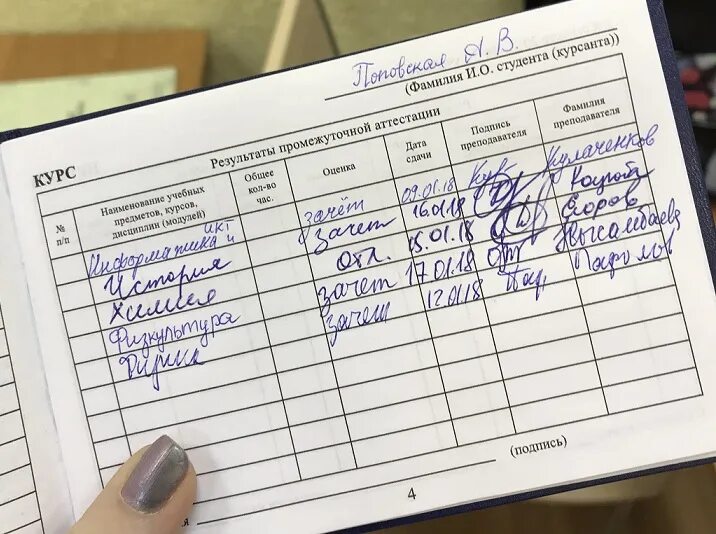 Поповская А. В.
(Фамилия И.О. студента (курсанта))
КУРС Результаты промежуточной аттестации
№ п/п Наименование учебных предметов, курсов, дисциплин (модулей) Общее кол-во час. Оценка Дата сдачи Подпись преподавателя Фамилия преподавателя
Информатика и ИКТ зачёт 09.01.18 Кул Кулаченков
История зачет 16.01.18
Химия отл. 15.01.18 Егоров
Физкультура зачет 17.01.18
зачет 12.01.18
(подпись)
4